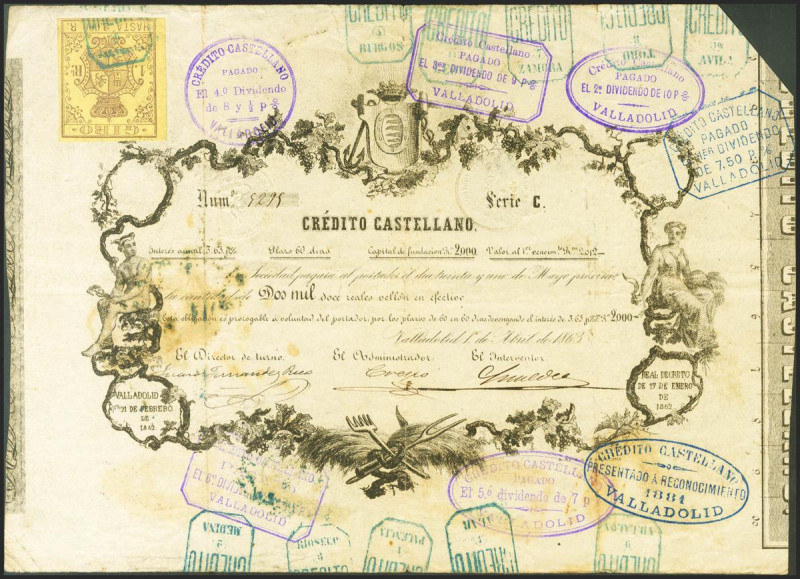 CRÉDITO
BURGOS
CRÉDITO
CRÉDITO
ZAMORA
CRÉDITO
TORO
CRÉDITO
AVILA
HASTA
1 R.
GIRO
CRÉDITO CASTELLANO
PAGADO
El 4.º Dividendo
de 8 y ½ p %
VALLADOLID
Crédito Castellano
PAGADO
EL 3er DIVIDENDO DE 9 p %
VALLADOLID
Crédito Castellano
PAGADO
EL 2º DIVIDENDO DE 10 P %
VALLADOLID
CASTELLANO
PAGADO
DIVIDENDO
DE 7.50 P %
VALLADOLID
Num.º 5295 Serie C.
CRÉDITO CASTELLANO.
Interés anual 3.65 p% Plazo 60 dias Capital de fundacion 2000 Valor al 1er vencim.to 2012
La Sociedad pagará al portador el dia treinta y uno de Mayo próximo
la cantidad de Dos mil doce reales vellón en efectivo
Esta obligacion es prorogable á voluntad del portador, por los plazos de 60 en 60 dias devengando el interés de 3.65 2000
Valladolid 1.º de Abril de 186
El Director de turno. El Administrador. El Interventor.
VALLADOLID
21 DE FEBRERO
DE
1862.
REAL DECRETO
DE 17 DE ENERO
DE
1862
CASTELLANO
EL 6º DIVIDENDO
VALLADOLID
CRÉDITO CASTELLANO
PAGADO
El 5.º dividendo de 7 p
VALLADOLID
CRÉDITO CASTELLANO
PRESENTADO Á RECONOCIMIENTO
1881
VALLADOLID
MEDINA
CRÉDITO
RIOSECO
CRÉDITO
PALENCIA
CRÉDITO
CRÉDITO
CRÉDITO
CRÉDITO CASTELLANO